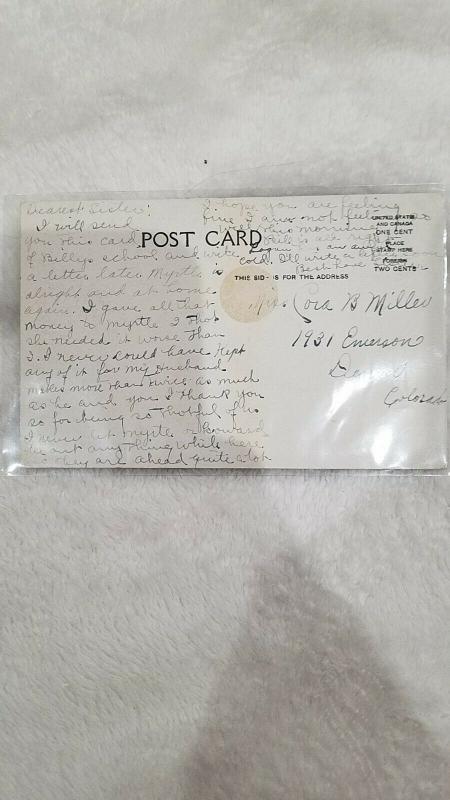 Dearest Sister:
I will send
you this card
of Billys school and write
a letter later Myrtle is
alright and at home
again. I gave all that
money to Myrtle I thot
she needed it worse than
I. I never could have kept
any of it for my Husband
makes more than twice as much
as he and you I thank you
so for being so thotful of us
I never let Myrtle or Howard
want any thing while here
so they are ahead quite a lot
I hope you are feeling
fine I am not feeling
well this morning
cold. I'll write a
Best love
POST CARD
THIS SIDE IS FOR THE ADDRESS
UNITED STATES
AND CANADA
ONE CENT
PLACE
STAMP HERE
FOREIGN
TWO CENTS
Mrs. Cora B Miller
1931 Emerson
Denver
Colorado